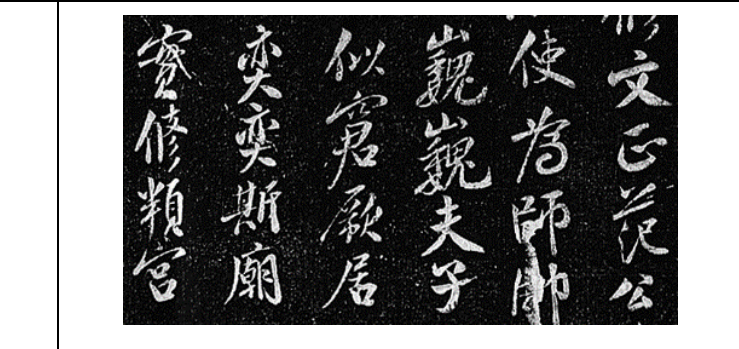 文正范公
使為師帥
巍巍夫子
似窘厥居
奕奕斯廟
修頖宮